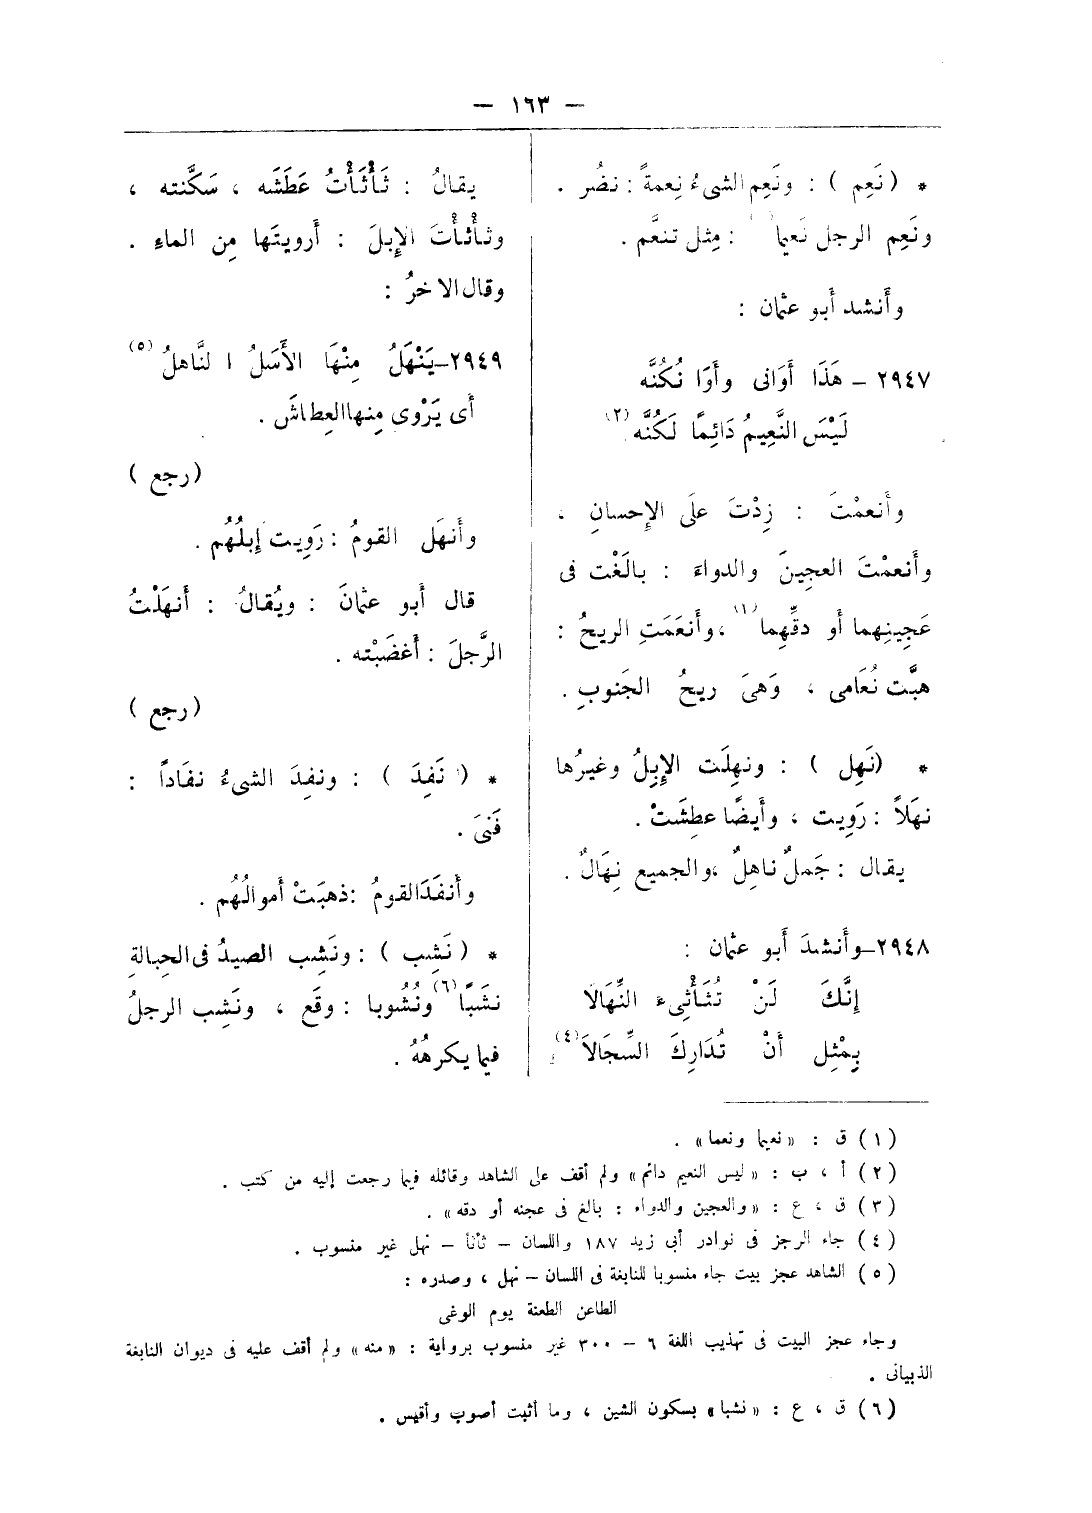 — ١٦٣ —
* ( نَعِم ) : ونَعِم الشىءُ نِعمةً : نضُر .
ونَعِم الرجل نَعيما : مِثل تنعَّم .
وأَنشد أَبو عثمان :
٢٩٤٧ – هَذَا أَوَانى وأَوَا نُكُنَّه
لَيْسَ النَّعِيمُ دَائِمًا لَكُنَّه (٢)
وأَنعمْتَ : زِدْتَ علَى الإِحسانِ ،
وأَنعمْتَ العجِينَ والدواءَ : بالَغْت فى
عَجِينِهما أَو دقِّهِما (١) ، وأَنعَمَتِ الريحُ :
هبَّت نُعَامى ، وَهىَ ريحُ الجَنوبِ .
* (نَهِل ) : ونهِلَت الإِبِلُ وغيرُها
نهَلاً : رَوِيت ، وأَيضًا عطِشَتْ .
يقال : جَملٌ ناهِلٌ ، والجميع نِهَالٌ .
٢٩٤٨–وأَنشدَ أَبو عثمان :
إِنَّكَ لَنْ تُثَأْثِىءَ النِّهَالَا
بِمْثِل أَنْ تُدَارِكَ السِّجَالَا (٤)
يقالُ : ثَأْثَأْتُ عَطَشَه ، سَكَّنته ،
وثأْثأْتَ الإِبلَ : أَرويتَها مِن الماءِ .
وقال الاخرُ :
٢٩٤٩–يَنْهَلُ مِنْهَا الأَسَلُ ا لنَّاهلُ (٥)
أَى يَرْوى مِنها العِطاشَ .
(رجع )
وأَنهَل القومُ : رَوِيت إِبلُهُم .
قال أَبو عثمانَ : ويُقالُ : أَنهَلْتُ
الرَّجلَ : أَغضَبْته .
(رجع )
* ( نَفِدَ ) : ونفِدَ الشىءُ نفَاداً :
فَنىَ .
وأَنفَدَ القومُ : ذهبَتْ أَموالُهُم .
* ( نَشِب ) : ونَشِب الصيدُ فى الحِبالةِ
نشَبًا (٦) ونُشُوبا : وقَع ، ونَشِب الرجلُ
فيما يكرهُهُ .
(١) ق : «نعيما ونعما» .
(٢) أ ، ب : « ليس النعيم دائم» ولم أقف على الشاهد وقائله فيما رجعت إليه من كتب .
(٣) ق ، ع : «والعجين والدواء : بالغ فى عجنه أو دقه» .
(٤) جاء الرجز فى نوادر أبى زيد ١٨٧ واللسان – ثأثأ – نهل غير منسوب .
(٥) الشاهد عجز بيت جاء منسوبا للنابغة فى اللسان – نهل ، وصدره :
الطاعن الطعنة يوم الوغى
وجاء عجز البيت فى تهذيب اللغة ٦ – ٣٠٠ غير منسوب برواية : «منه» ولم أقف عليه فى ديوان النابغة
الذبيانى .
(٦) ق ، ع : « نشبا» بسكون الشين ، وما أثبت أصوب وأقيس .